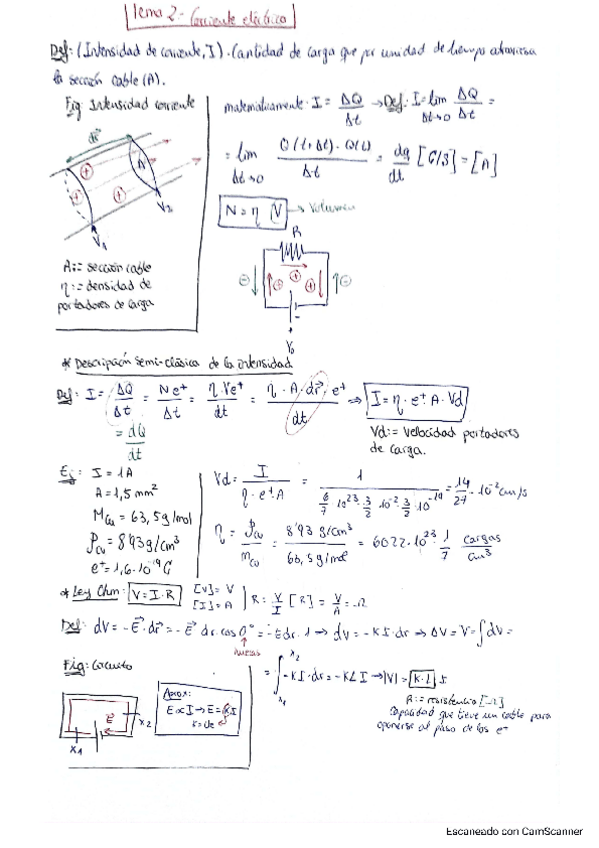 Tema 2.- Corriente eléctrica
Def: (Intensidad de corriente, I). Cantidad de carga que por unidad de tiempo atraviesa
la sección cable (A).
Fig: Intensidad corriente
dr
A
V1
V2
A:= sección cable
η:= densidad de
portadores de carga
matemáticamente: I = ΔQ/Δt → Def: I = lim Δt→0 ΔQ/Δt =
= lim Δt→0 Q(t+Δt)-Q(t)/Δt = dq/dt [C/S] = [A]
N = η V → Volumen
R
V0
* Descripción semi-clásica de la intensidad
Def: I = ΔQ/Δt = N e+/Δt = η·V e+/dt = η·A·dr·e+/dt ⇒ I = η·e+ A·Vd
= dQ/dt
Vd:= Velocidad portadores
de carga.
Ej: I = 1A
A = 1,5 mm²
Mcu = 63,5 g/mol
ρcu = 8'93 g/cm³
e+ = 1,6·10⁻¹⁹ C
Vd = I/η·e+·A = 1 / = 14/27 · 10⁻² cm/s
η = ρcu/mcu = 8'93 g/cm³ / g/mol = 6022·10²³· 1/7 cargas/cm³
* Ley Ohm: V = I·R [V] = V [I] = A | R = V/I [R] = V/A = Ω
Def: dV = -E·dr = -E dr·cos 0° = -E dr·1 → dV = -KI·dr → ΔV = V = ∫dV =
Fig: Circuito
E
x1
x2
Aprox:
E∝I → E = KI
K = cte
= ∫ x1 x2 -KI·dr = -KLI → |V| = K·L I
R:= resistencia [Ω]
Capacidad que tiene un cable para
oponerse al paso de los e+
Escaneado con CamScanner